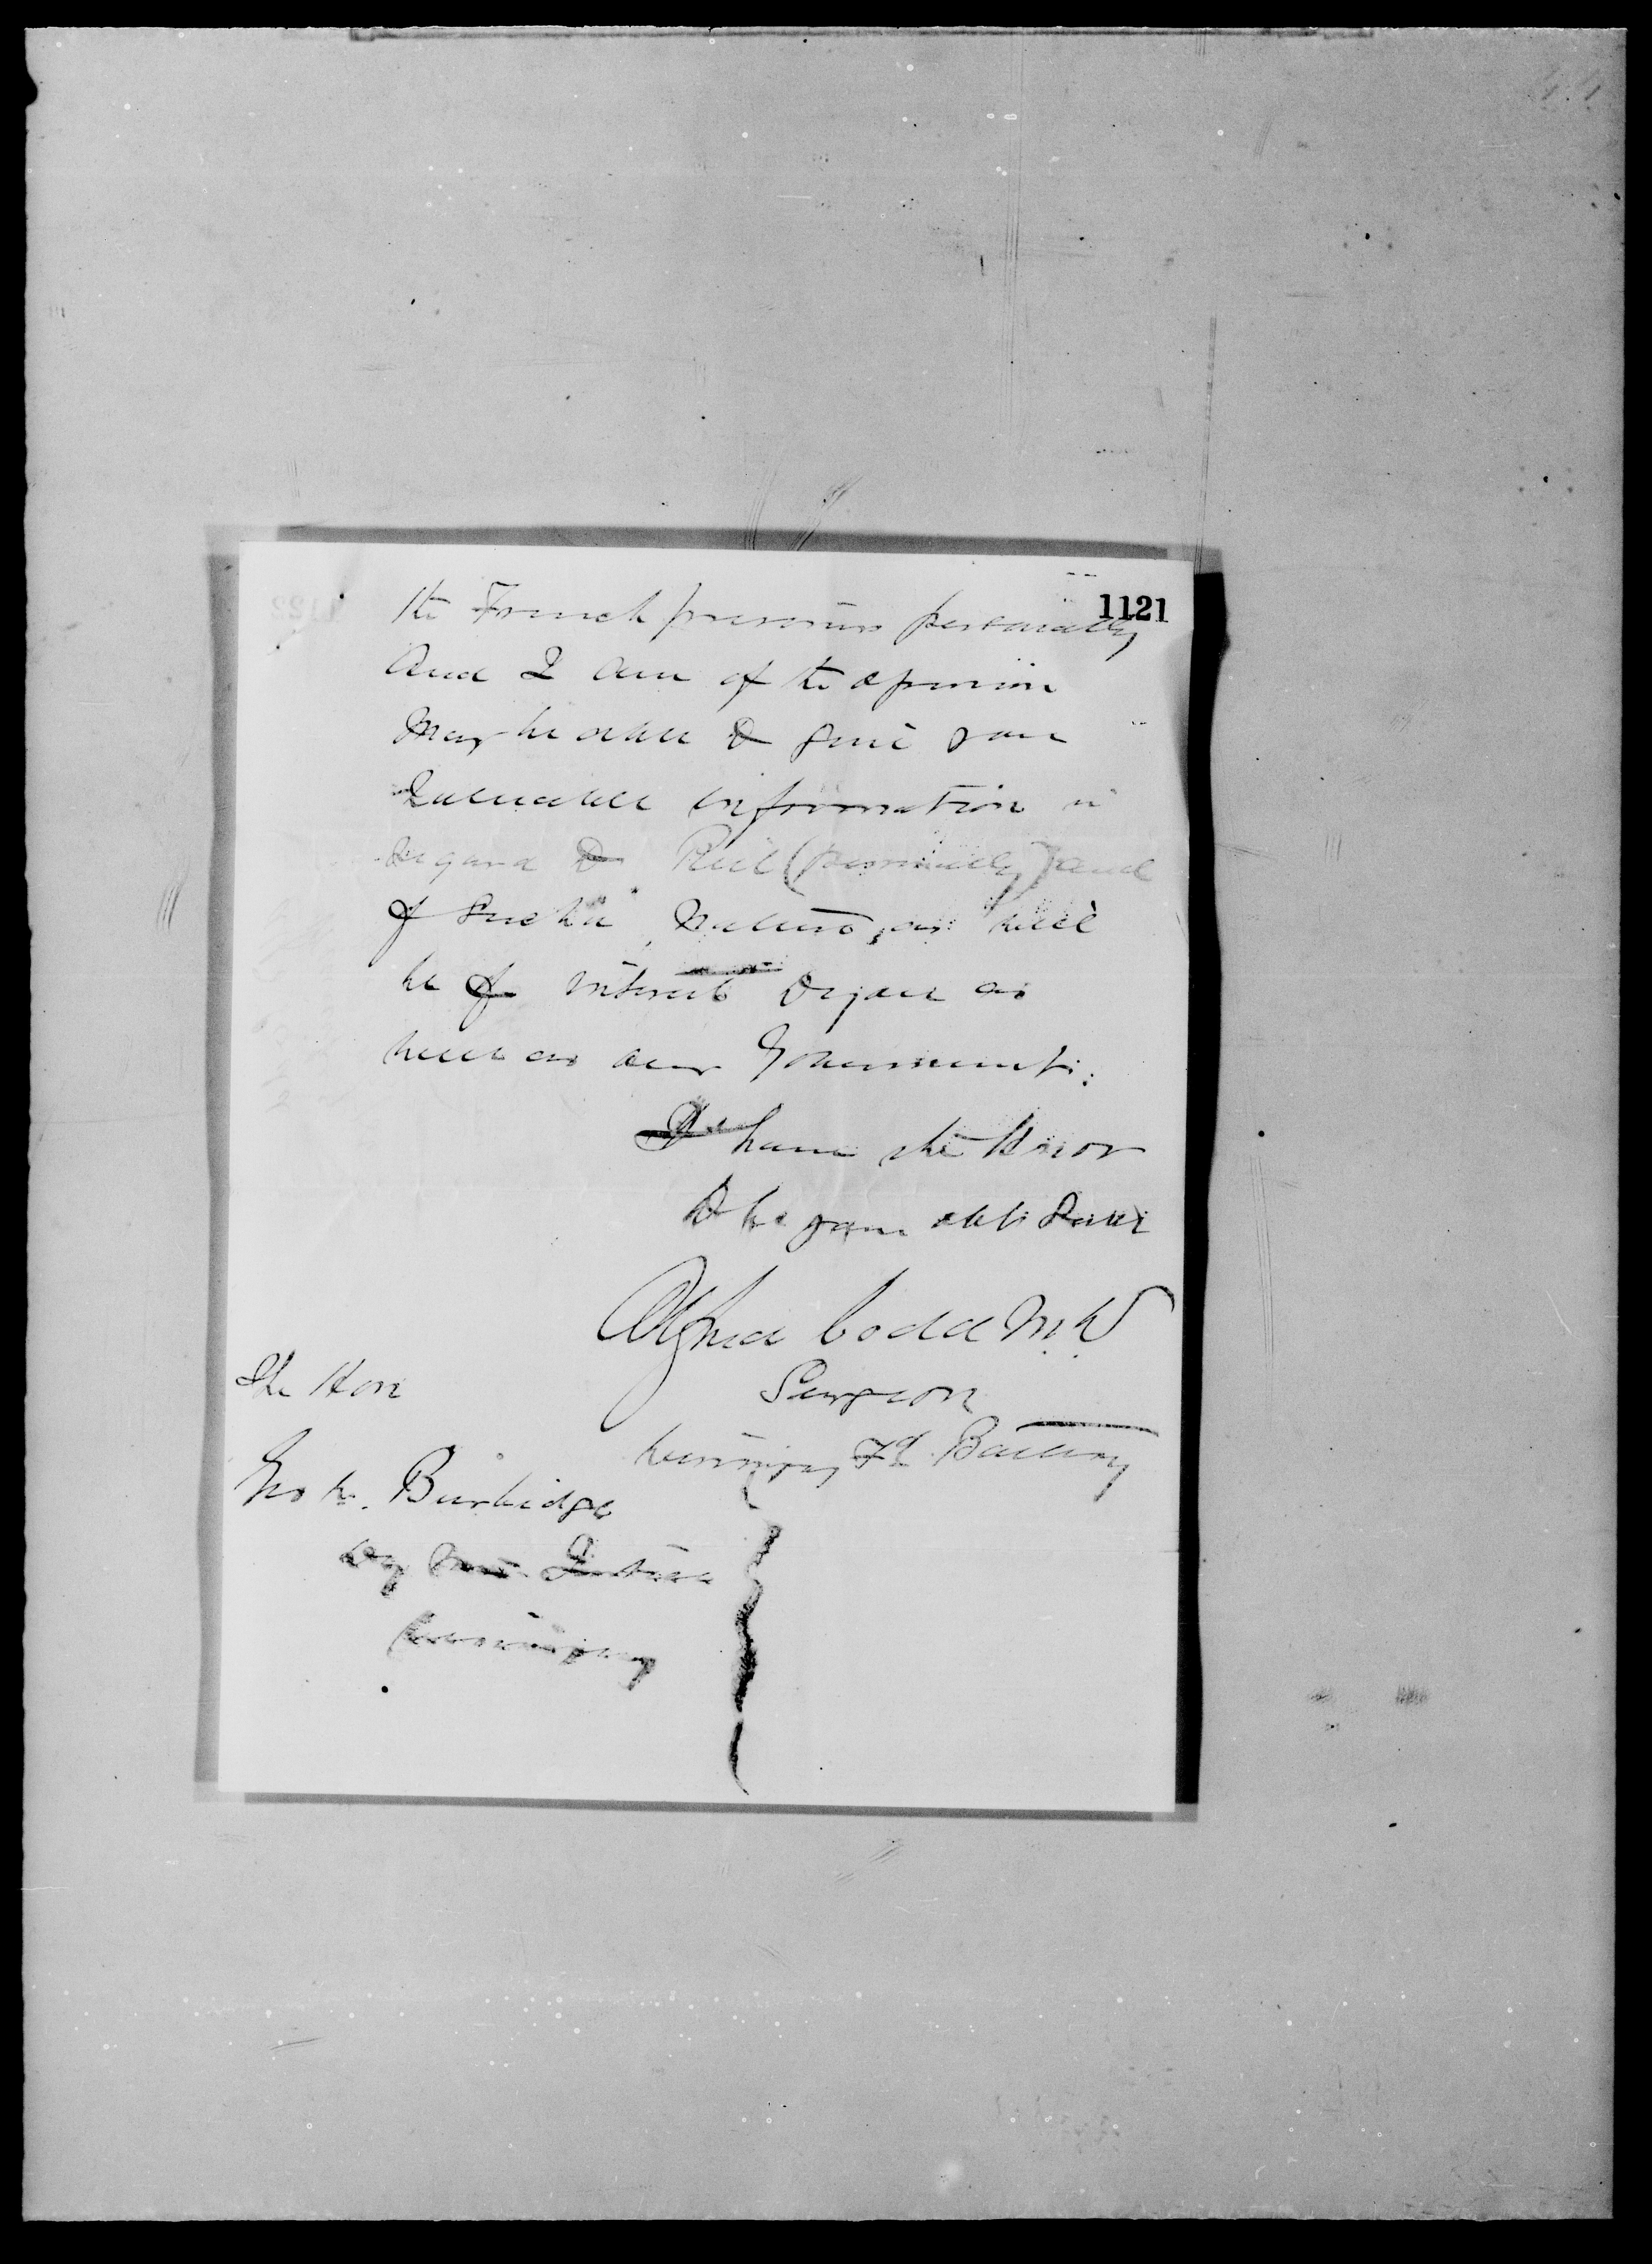 1121
the French prisoners personally
and I am of the opinion
may be able to give you
valuable information in
regard to Riel (personally) and
of such a nature, as will
be of interest to you as
well as our Government:
I have the Honor
to be your obt Servt
Alfred Codd M.D
Surgeon
Winnipeg Fd Battery
The Hon
Geo W. Burbidge
Dy Min. Justice
Winnipeg